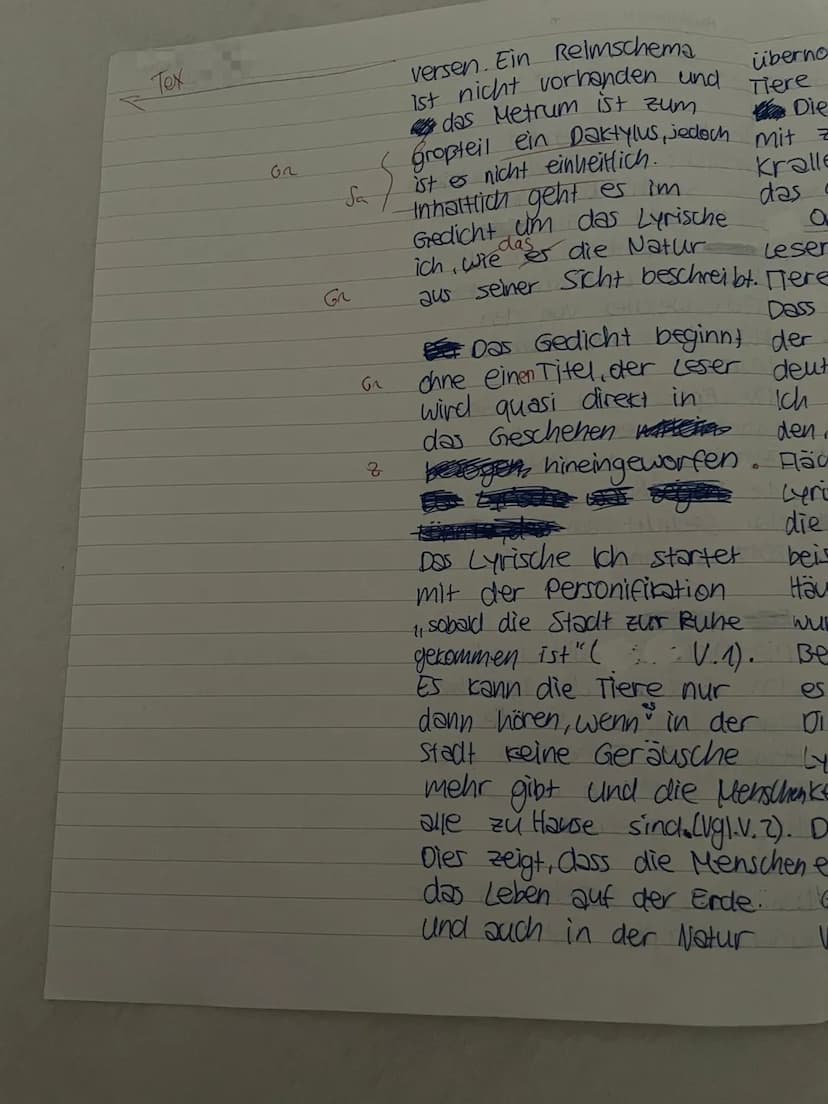 Tex
versen. Ein Reimschema
ist nicht vorhanden und
das Metrum ist zum
Gr
großteil ein Daktylus, jedoch
Sa
ist es nicht einheitlich.
Inhaltlich geht es im
Gedicht um das Lyrische
das
ich, wie es die Natur
Gr
aus seiner Sicht beschreibt.
Das Gedicht beginnt
Gr
ohne einen Titel, der Leser
wird quasi direkt in
das Geschehen
z
hineingeworfen.
Das Lyrische Ich startet
mit der Personifikation
„sobald die Stadt zur Ruhe
gekommen ist" ( V.1).
Es kann die Tiere nur
dann hören, wenn es in der
Stadt keine Geräusche
mehr gibt und die Menschen
alle zu Hause sind. (Vgl. V. 2).
Dies zeigt, dass die Menschen
das Leben auf der Erde.
und auch in der Natur
überno
Tiere
Die
mit z
Kralle
das
Leser
Tiere
Dass
der
deut
Ich
den,
Fläc
Lyri
die
beis
Häu
wur
Be
es
Di
Ly
D